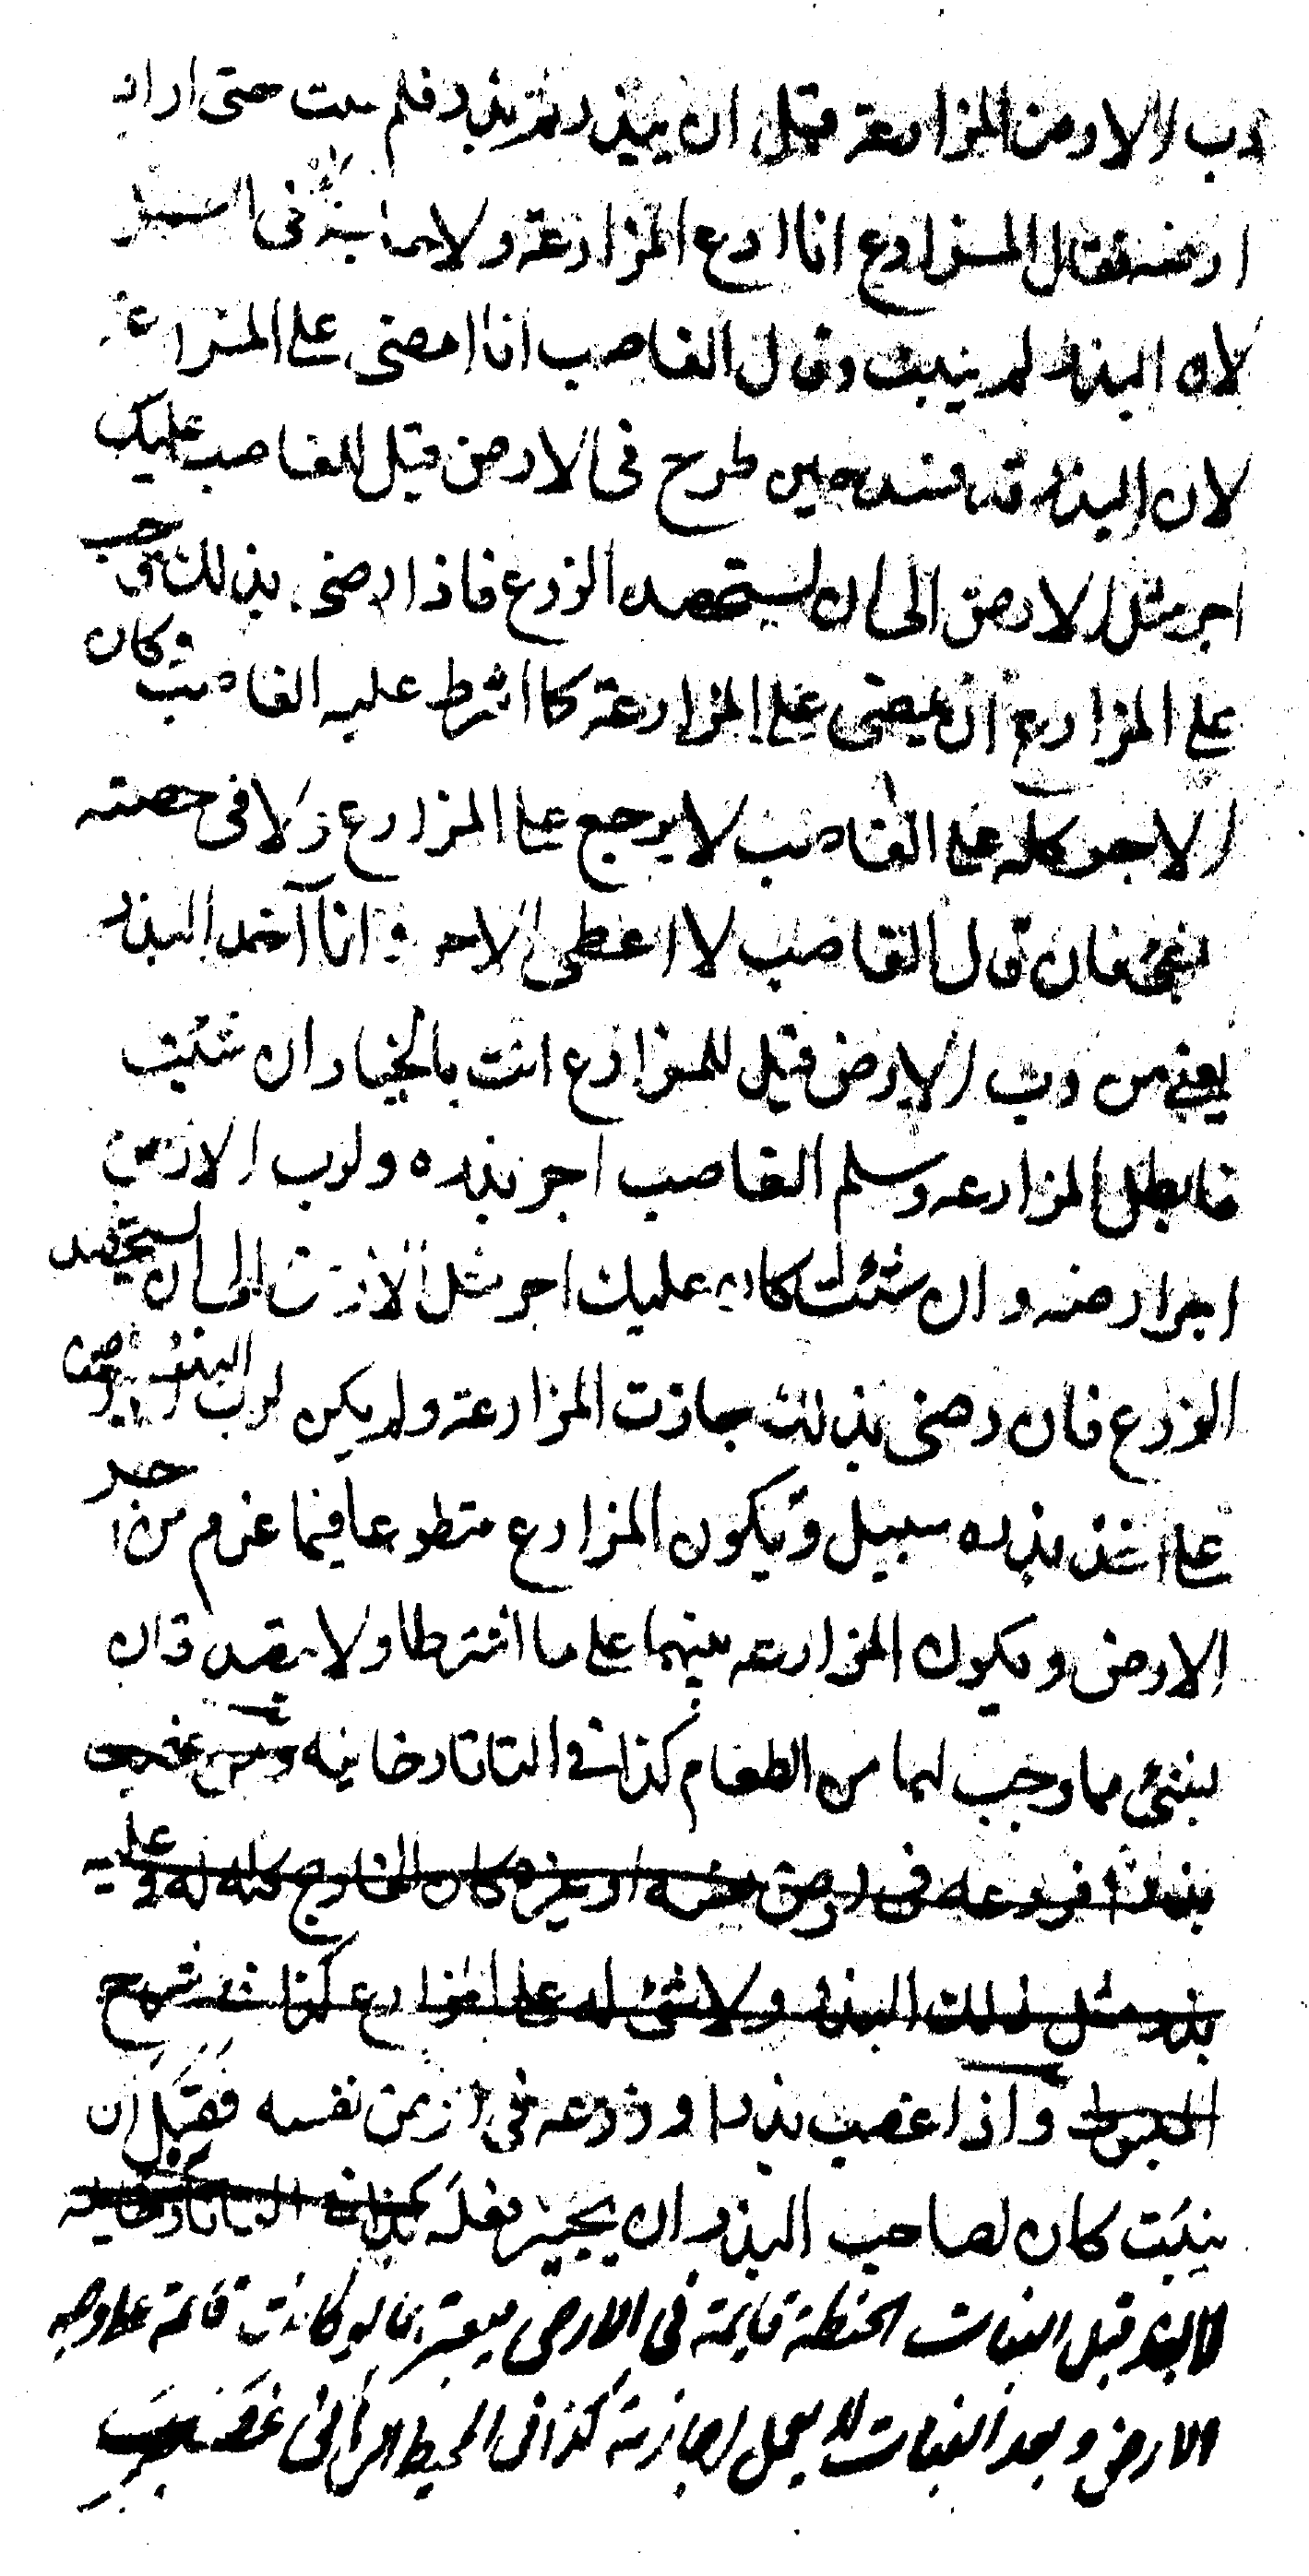 رب الارض المزارعة قبل ان يبذر ثم بذر فلم ينبت حتى اراد
ارضه فقال المزارع انا ادع المزارعة ولا حاجة فى البذر
لان البذر لم ينبت وقال الغاصب انا امضى على المزارعة
لان البذر قد فسد حين طرح فى الارض قيل للغاصب عليك
اجر مثل الارض الى ان يستحصد الزرع فاذا رضى بذلك وجب
على المزارع ان يمضى على المزارعة كما اشرط عليه الغاصب وكان
الاجر كله على الغاصب لا يرجع على المزارع ولا فى حصته
بشئ فان قال الغاصب لا اعطى الاجر انا آخذ البذر
يعنى من رب الارض قيل للمزارع انت بالخيار ان شئت
فابطل المزارعه وسلم الغاصب اجر بذره ولرب الارض
اجر ارضه وان شئت كان عليك اجر مثل الارض الى ان يستحصد
الزرع فان رضى بذلك جازت المزارعة ولم يكن لرب البذر
على اخذ بذره سبيل ويكون المزارع متطوعا فيما غرم من اجر
الارض ويكون المزارعه بينهما على ما اشترطا ولا يتصدقان
بشئ مما وجب لهما من الطعام كذا فى التاتارخانيه ومن غصب
بذرا فزرعه فى ارض غيره او كان الخارج كله له وعليه
بذر مثل ذلك البذر ولا شئ له على المزارع كذا فى شرح
المبسوط واذا غصب بذرا وزرعه فى ارض نفسه فقبل ان
ينبت كان لصاحب البذر ان يجيز فعله كذا فى التاتارخانيه
لان البذر قبل النبات الحنطة قايمة فى الارض فيعتبر بما لو كانت قائمة على وجه
الارض وبعد النبات لا يعمل اجازته كذا فى المحيط